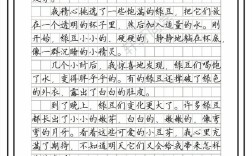 我精心挑选了一些饱满的绿豆，把它们放
在一个透明的杯子里，然后加入适量的水。刚
开始，绿豆小小的、硬硬的，静静地躺在杯底，
像一群沉睡的小精灵。
几个小时后，我惊喜地发现，绿豆们喝饱
了水，变得胖乎乎的。有的绿豆还撑破了绿色
的外衣，露出了白白的肚皮。
到了晚上，绿豆们变化更大了。许多绿豆
都长出了小小的嫩芽，白白的、嫩嫩的，像弯
弯的月牙。看着这些可爱的小豆芽，我心里充
满了期待，不知道明天它们又会给我带来怎样